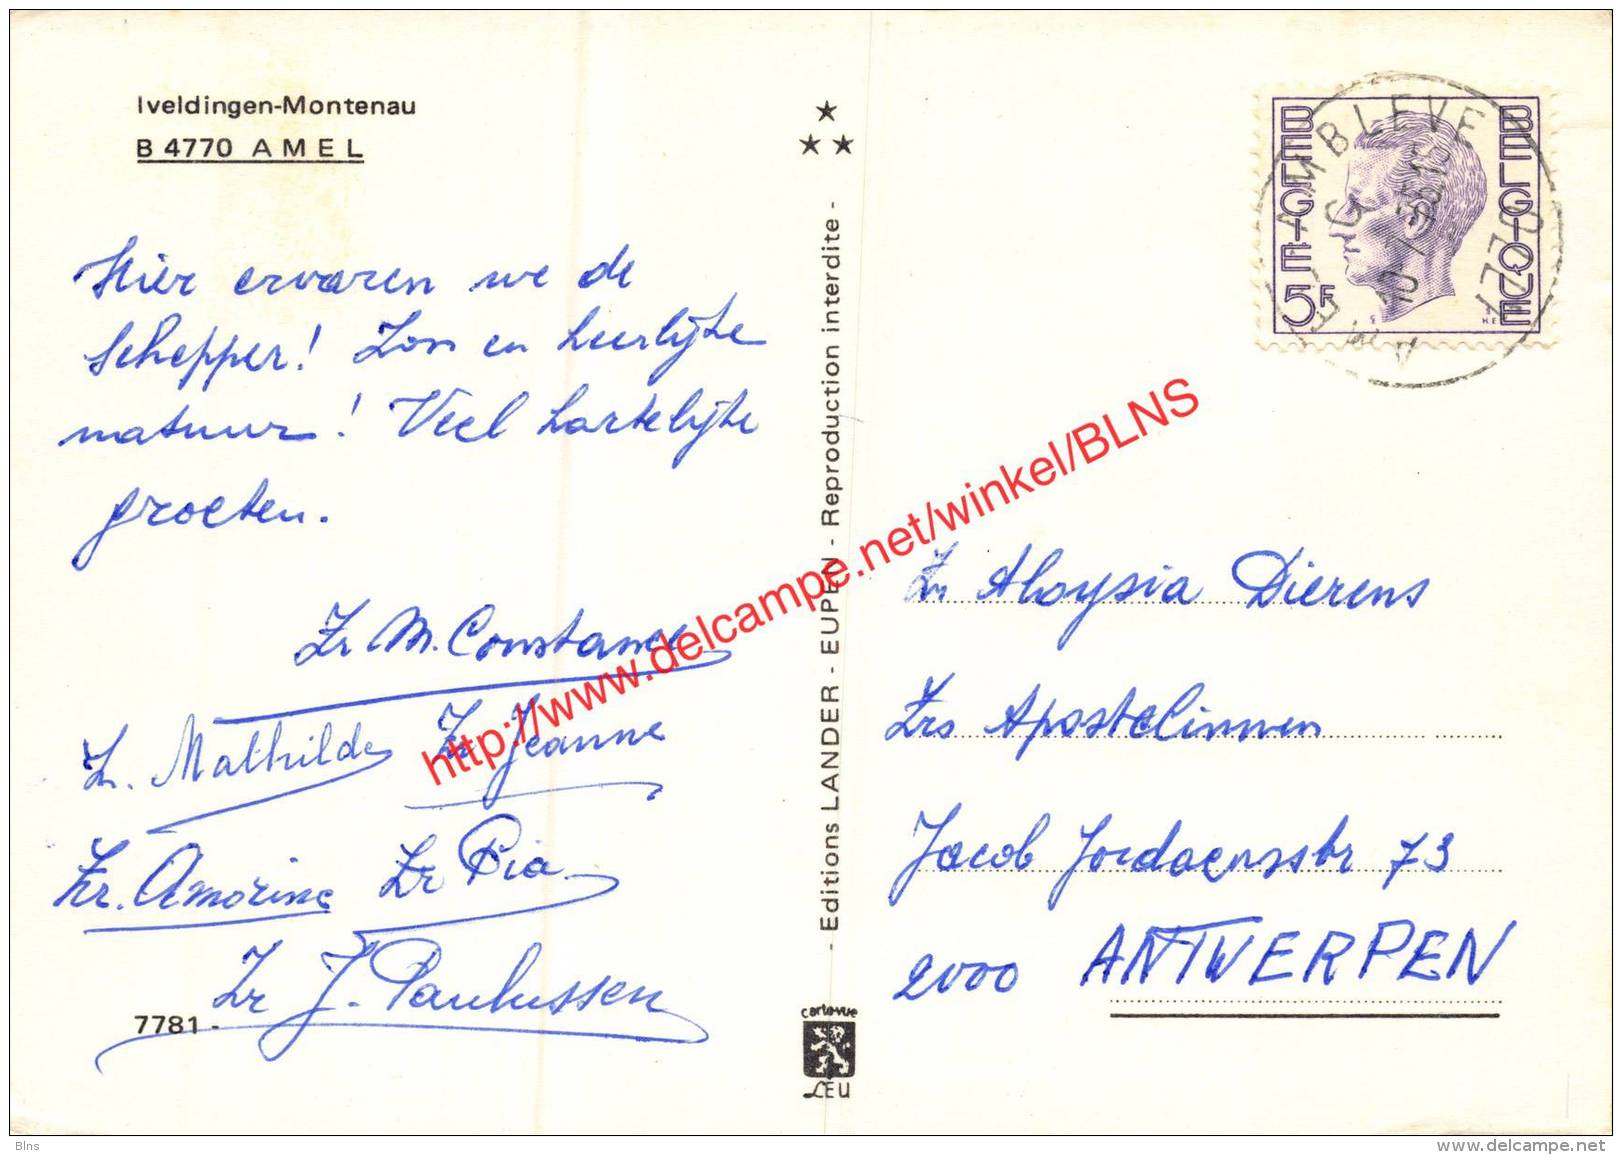 Iveldingen-Montenau
B 4770 AMEL
Hier ervaren we de
Schepper! Zon en heerlijke
natuur! Veel hartelijke
groeten.
Zr M. Constance
Zr. Mathilde Zr Jeanne
Zr. Amorine Zr Pia
Zr J. Paulussen
7781 -
- Editions LANDER - EUPEN - Reproduction interdite -
cartovue
LEU
BELGIE BELGIQUE
5F
AMBLEVE
AMEL
Zr Aloysia Dierens
Zrs Apostelinnen
Jacob Jordaensstr 73
2000 ANTWERPEN
http://www.delcampe.net/winkel/BLNS
Blns
www.delcampe.net